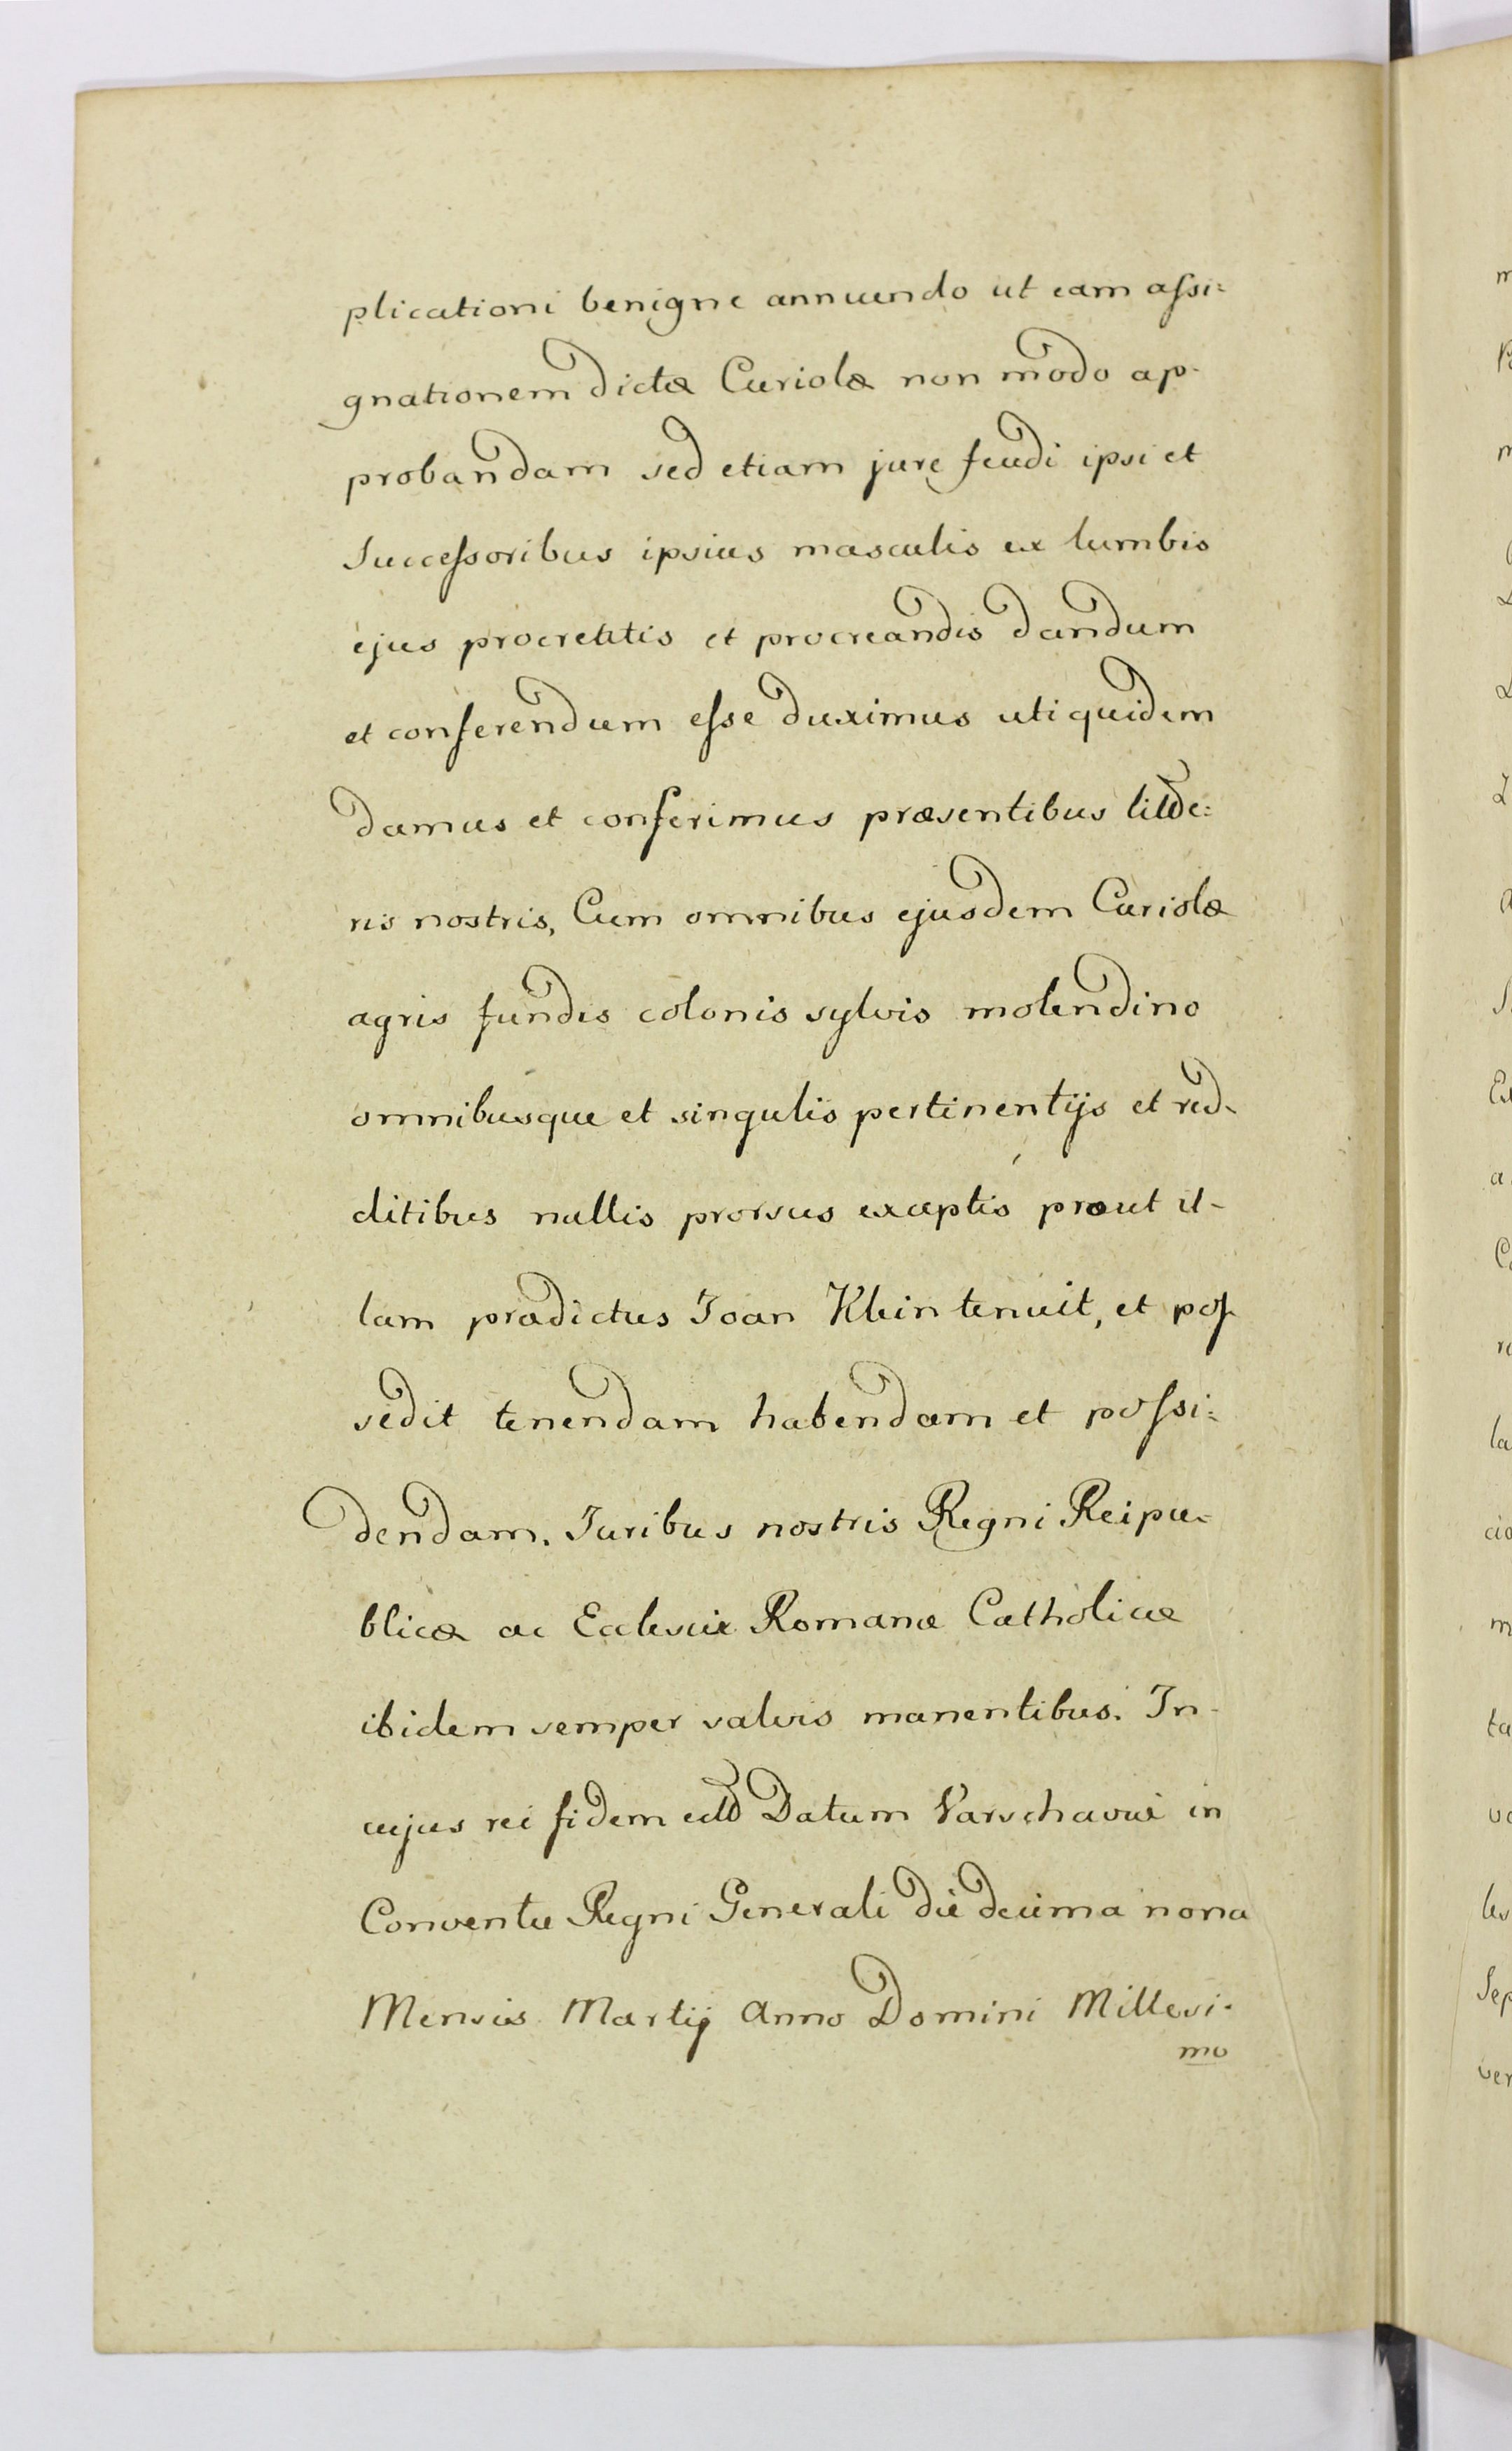 plicationi benigne annuendo ut eam aſsi=
gnationem dictæ Curiolæ non modo ap-
probandam sed etiam jure feudi ipsi et
Succeſsoribus ipsius masculis ex lumbis
ejus procretitis et procreandis dandum
et conferendum eſse duximus uti quidem
damus et conferimus præsentibus
ris nostris, Cum omnibus ejusdem Curiolæ
agris fundis colonis sylvis molendino
omnibusque et singulis pertinentijs et red-
ditibus nullis prorsus exceptis prout il-
lam prædictus Joan Klein tenuit, et poſ
sedit tenendam habendam et poſsi=
dendam. Juribus nostris Regni Reipu-
blicæ ac Ecclesiæ Romanæ Catholicæ
ibidem semper salvis manentibus. In-
cujus rei fidem Datum Varschaviæ in
Conventu Regni Generali die decima nona
Mensis Martij Anno Domini Millesi-
mo